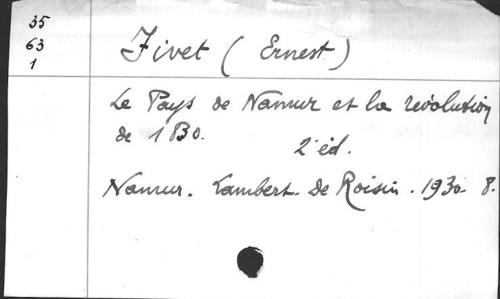 35
63
1
Fivet (Ernest)
Le Pays de Namur et la révolution
de 1830.
2e éd.
Namur. Lambert-De Roisin. 1930 8.